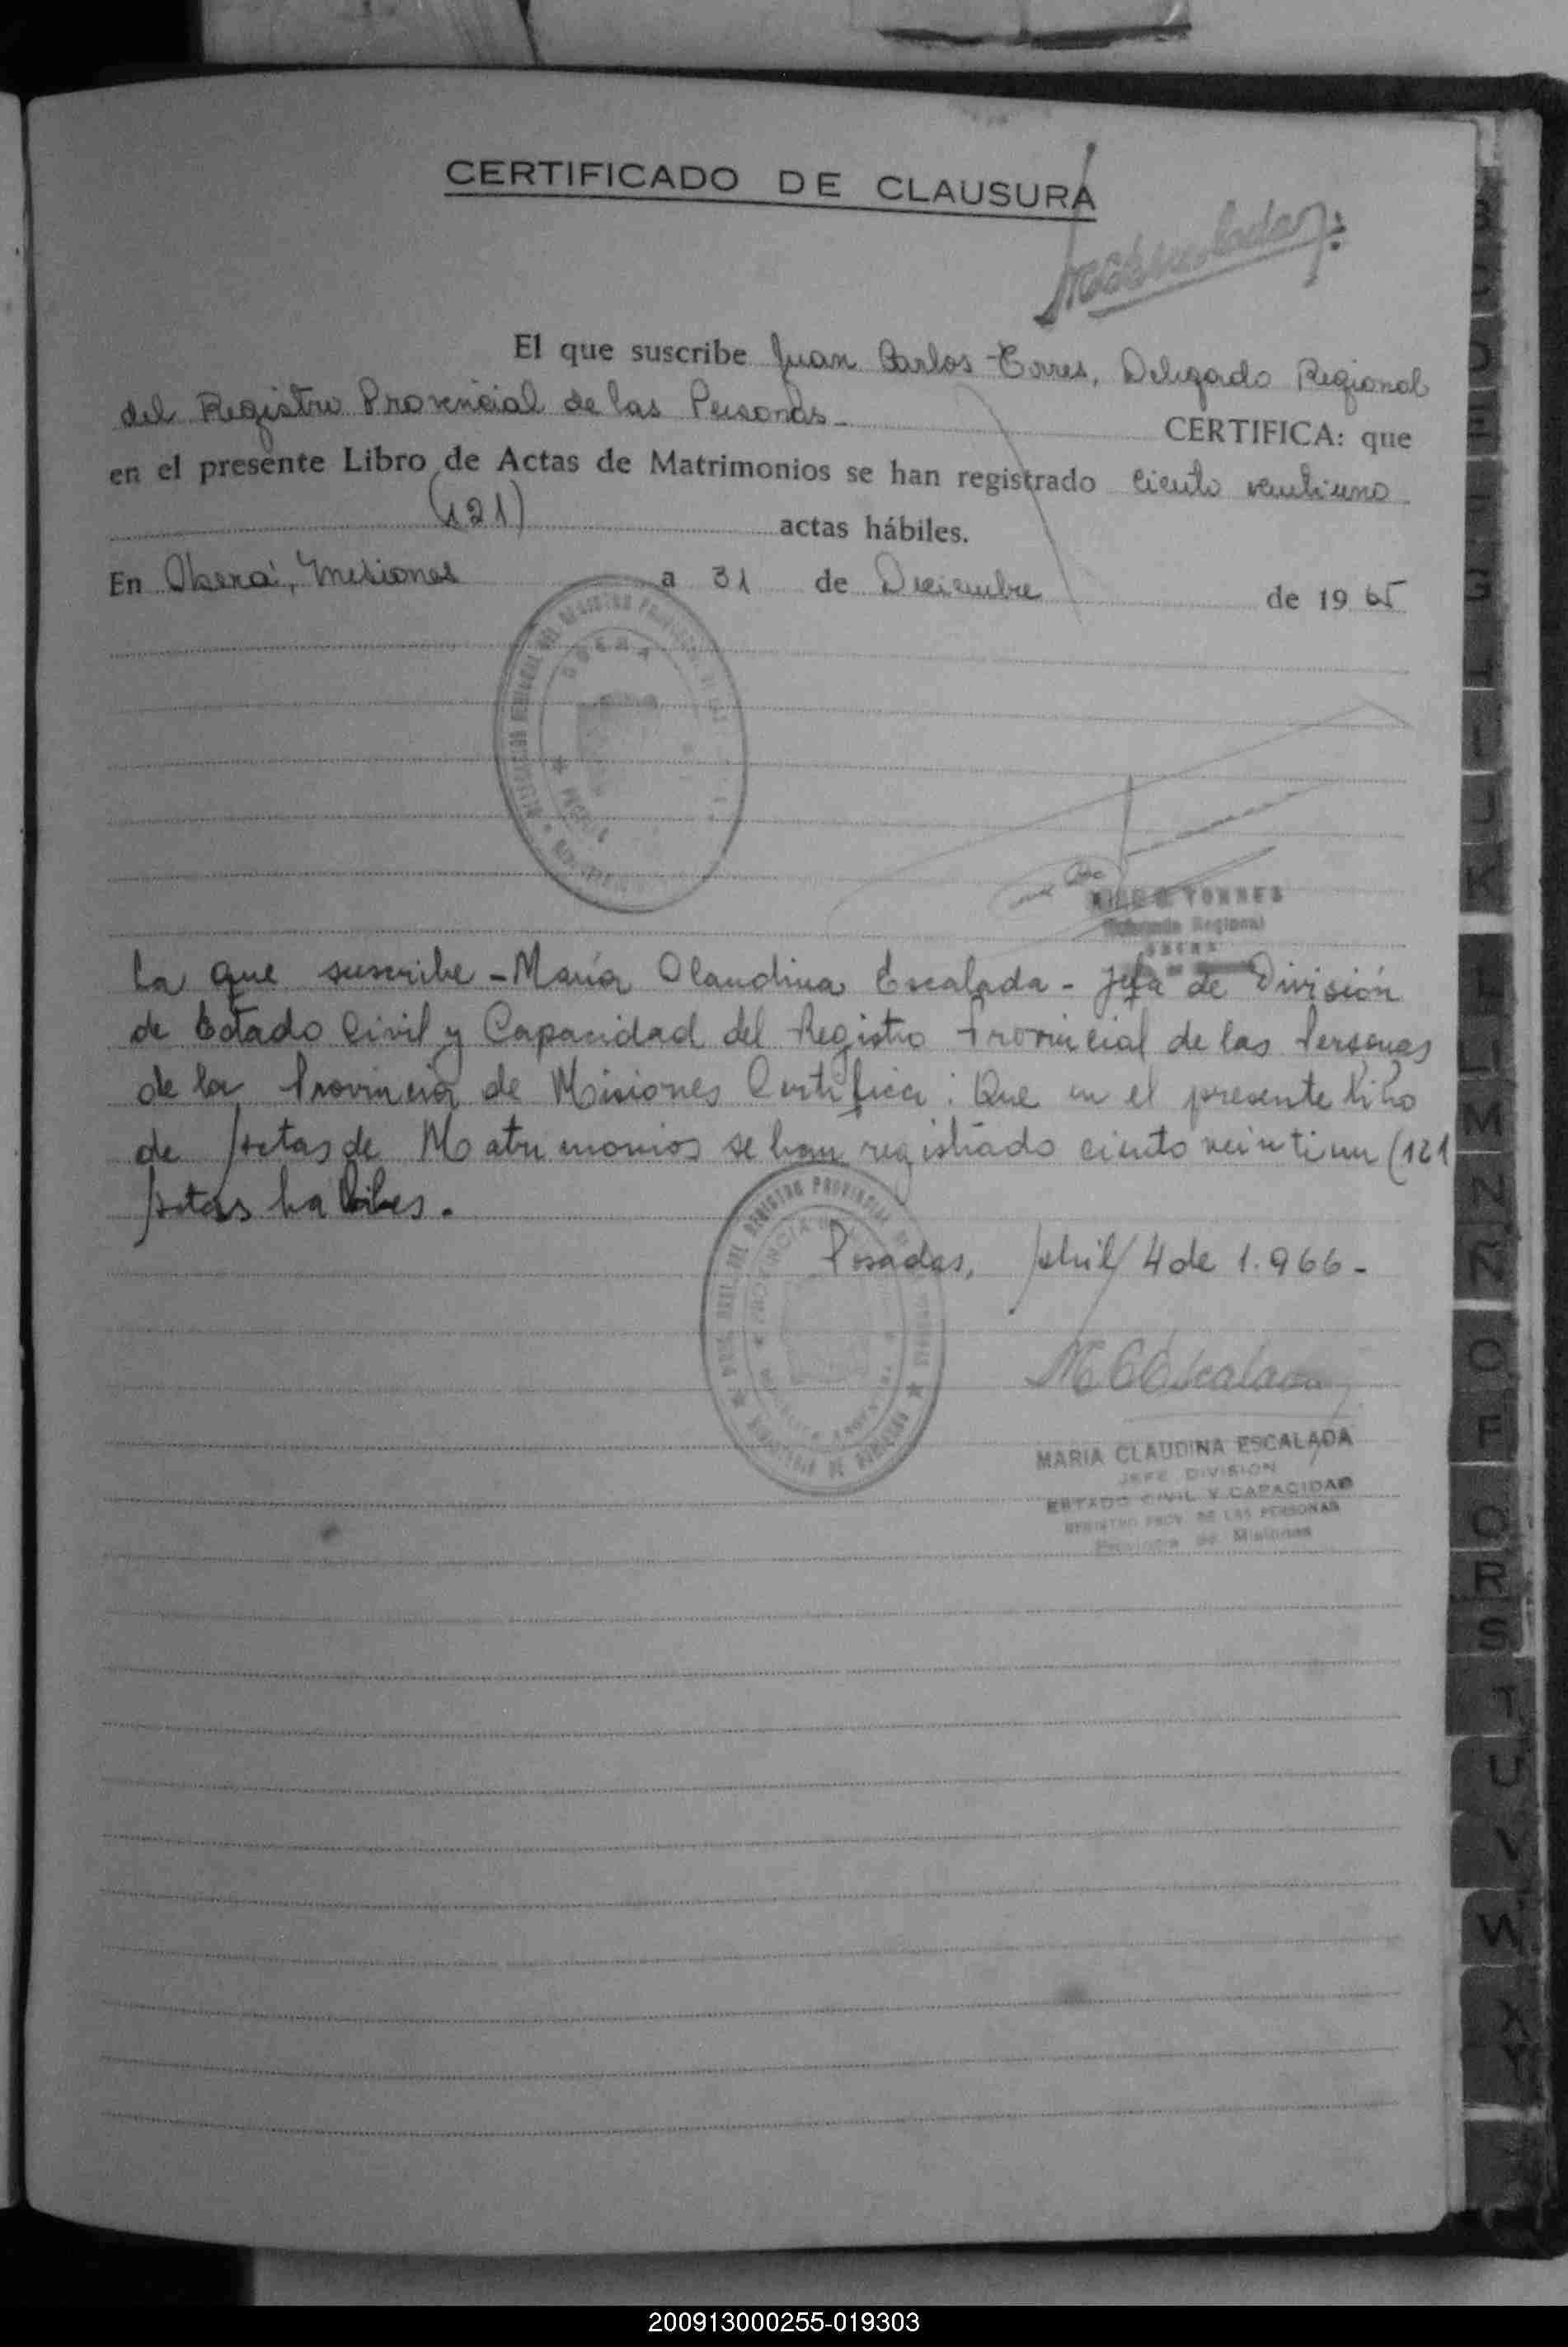 CERTIFICADO DE CLAUSURA
El que suscribe Juan Carlos Torres, Delegado Regional
del Registro Provincial de las Personas CERTIFICA: que
en el presente Libro de Actas de Matrimonios se han registrado ciento veintiuno
(121) actas hábiles.
En Oberá, Misiones a 31 de Diciembre de 1965
OBERA
TORRES
Delegado Regional
OBERA
La que suscribe - María Claudina Escalada - Jefa de División
de Estado Civil y Capacidad del Registro Provincial de las Personas
de la Provincia de Misiones Certifica: Que en el presente libro
de Actas de Matrimonios se han registrado ciento veintiun (121
Actas habiles.
Posadas, Abril 4 de 1.966-
DEL REGISTRO PROVINCIAL
MCEscalada
MARIA CLAUDINA ESCALADA
JEFE DIVISION
ESTADO CIVIL Y CAPACIDAD
REGISTRO PROV. DE LAS PERSONAS
Provincia de Misiones
K
L
M
N
Ñ
O
P
Q
R
S
T
U
V
W
X
Y
200913000255-019303